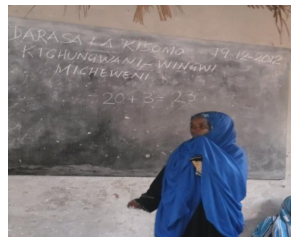 DARASA LA KISOMO 19-12-2012
KIGHUNGWANI-WINGWI
MICHEWENI
20+3=23